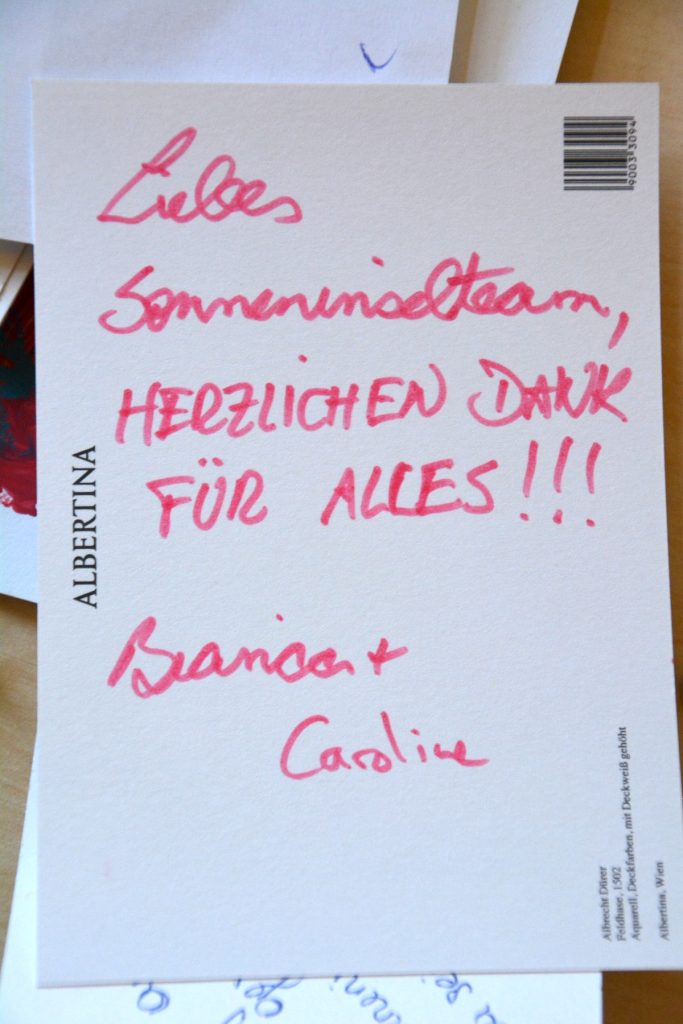 Liebes
Sonneninselteam,
HERZLICHEN DANK
FÜR ALLES!!!
Bianca +
Caroline
ALBERTINA
9003 3094
Albrecht Dürer
Feldhase, 1502
Aquarell, Deckfarben, mit Deckweiß gehöht
Albertina, Wien